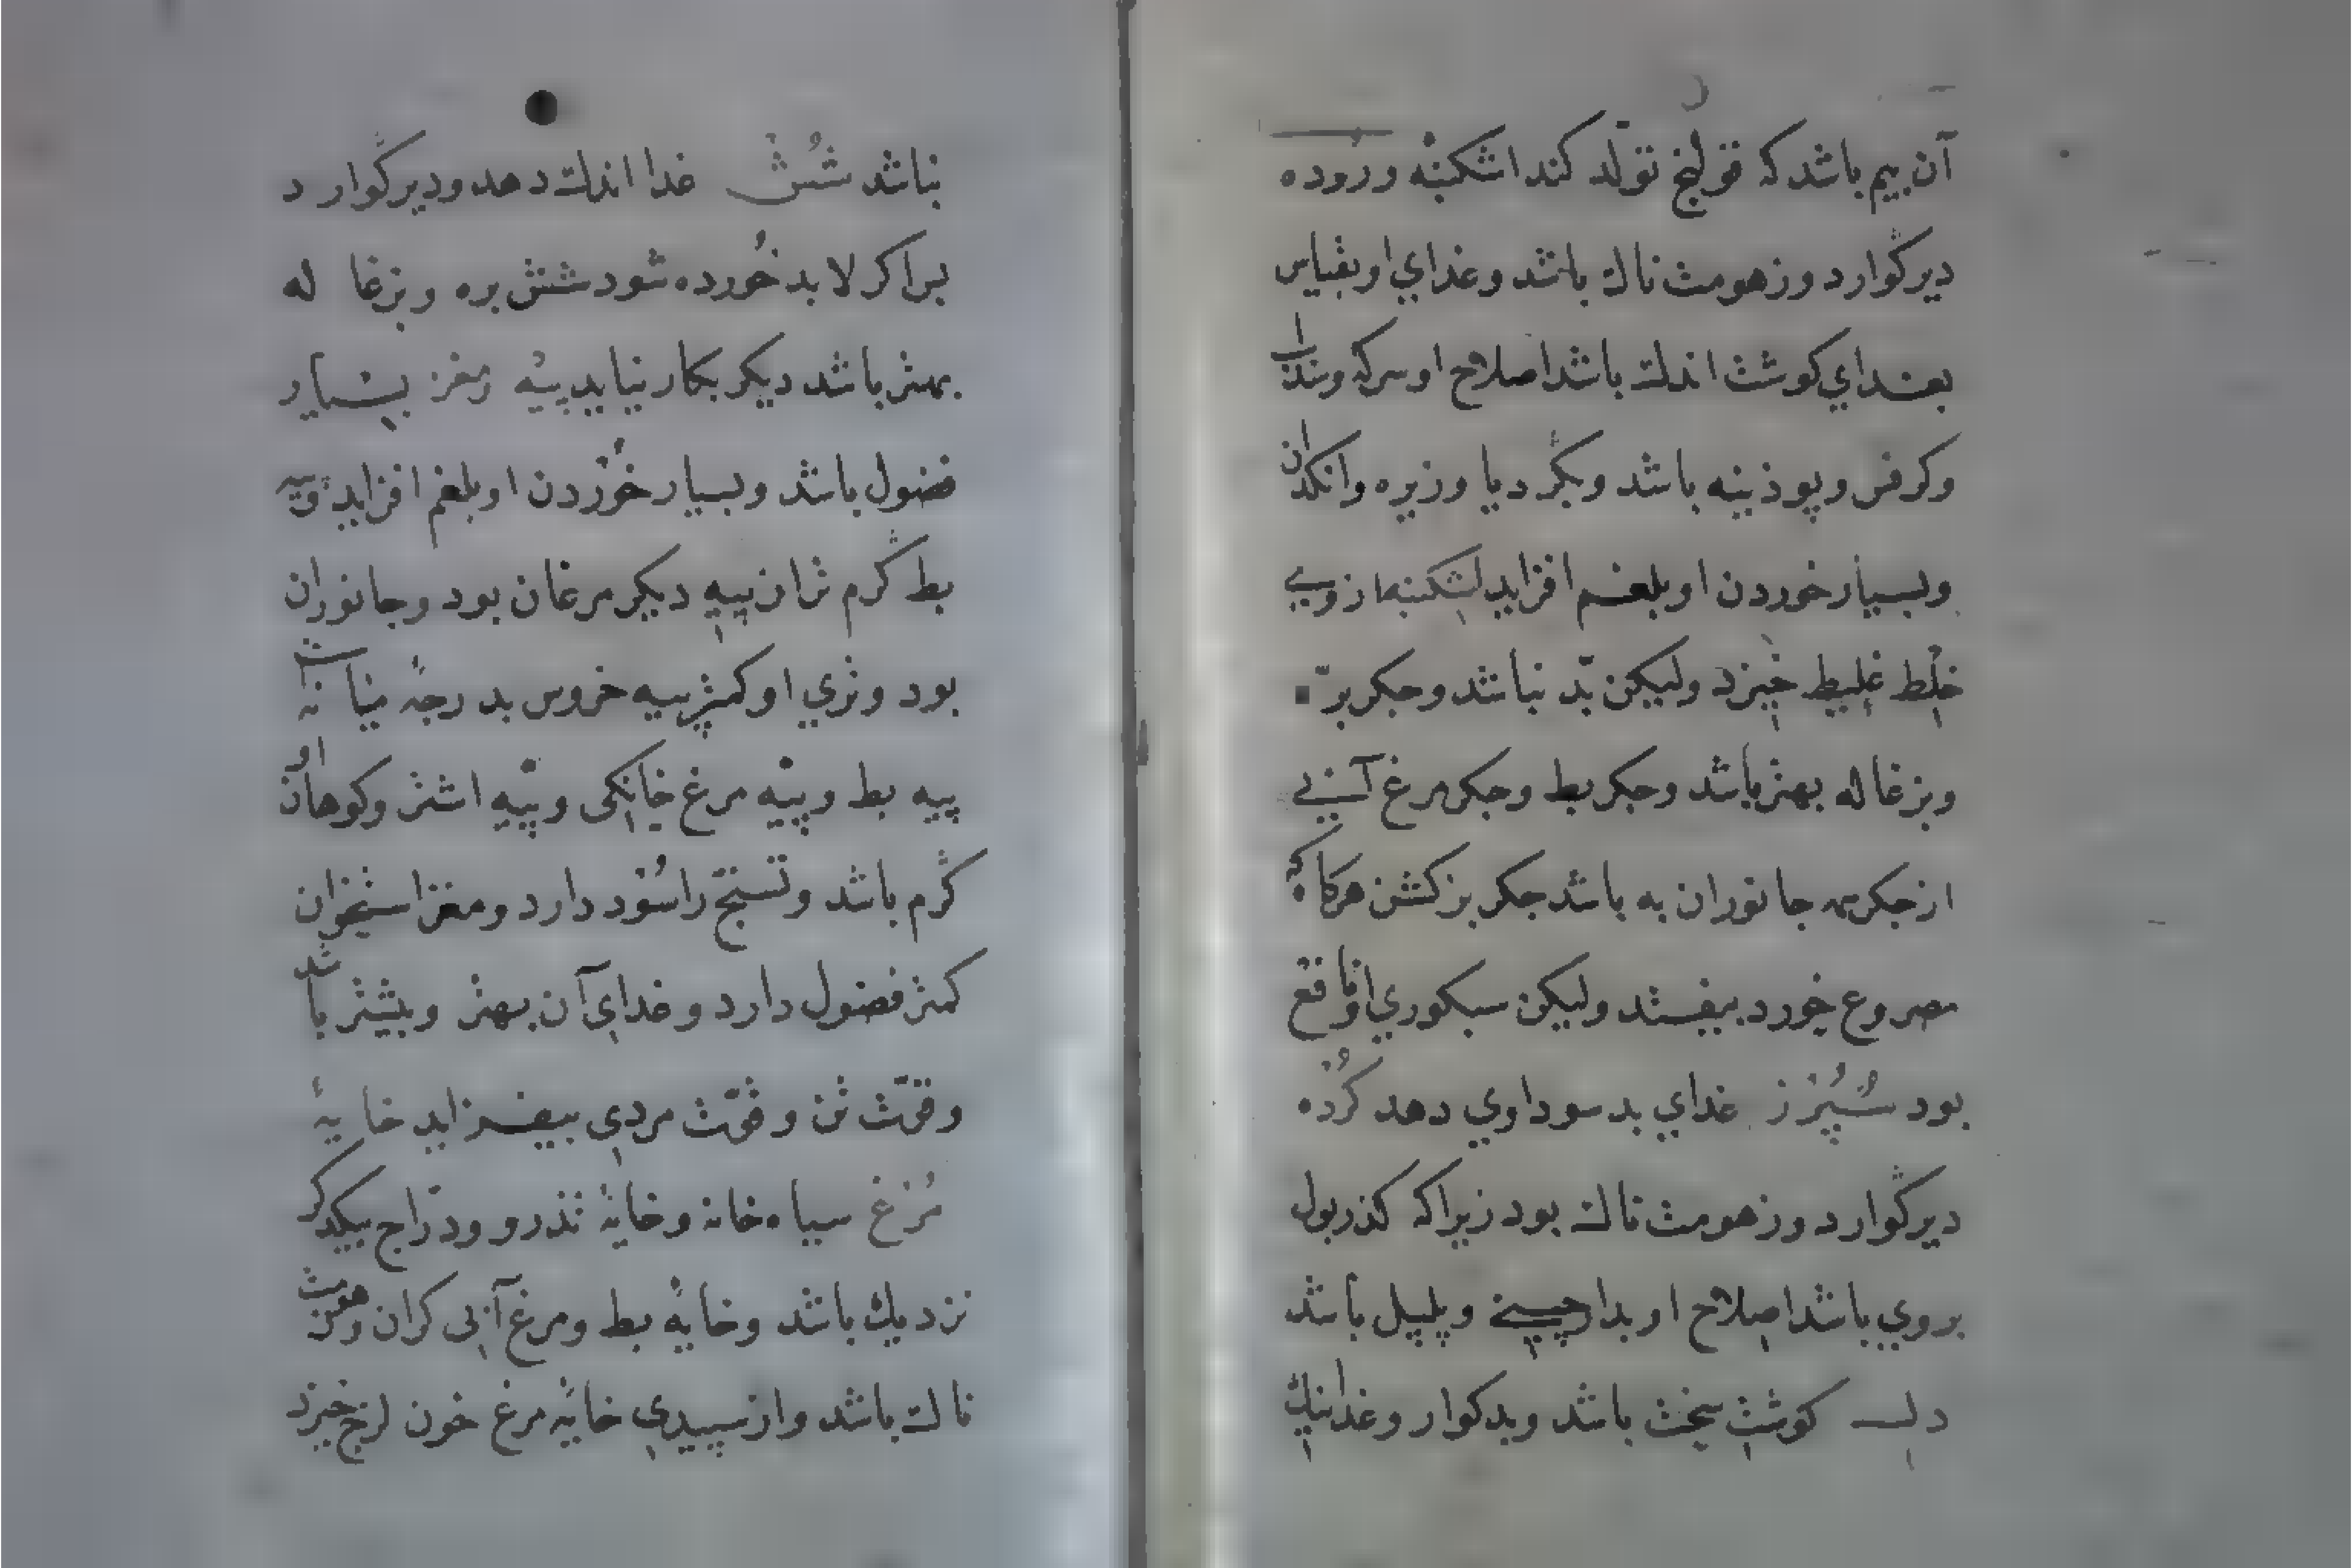 آن بیم باشد که قولنج تولد کند اشکنبه وروده
دیرکوارد وزهومت ناك باشد وغذای او بقیاس
بغذای کوشت اندك باشد اصلاح او سرکه وسذاب
وکرفس وپوذینه باشد وبکرد یا وزیره وانکدان
وبسیار خوردن او بلغم افزاید اشکنبه از وی
خلط غلیظ خیزد ولیکن بد نباشد وجکر بره
وبزغاله بهتر باشد وجکر بط وجکر مرغ آبی
از جکر همه جانوران به باشد جکر بز کشن هرکاه که
مصروع خورد بیفتد ولیکن سبکوری را نافع
بود سپرز غذای بد سوداوی دهد کرده
دیرکوارد وزهومت ناك بود زیراکه کذر بول
بروی باشد اصلاح او بدارچینی وپلپل باشد
دل کوشت سخت باشد وبدکوار وغذا نیك
نباشد شش غذا اندك دهد ودیرکوارد
براکر لابد خورده شود شش بره وبزغاله
بهتر باشد دیکر بکار نیاید پیه ومغز بسیار
فضول باشد وبسیار خوردن او بلغم افزاید وپیه
بط کرم تر از پیه دیکر مرغان بود وجانوران
بود وتری او کمتر پیه خروس بدرجه میانه
پیه بط وپیه مرغ خانکی وپیه اشتر وکوهان او
کرم باشد وتشنج را سود دارد ومغز استخوان
کمتر فضول دارد وغذای آن بهتر وبیشتر باشد
وقوت تن وقوت مردی بیفزاید خایه
مرغ سیاه خانه وخایه تذرو ودراج بیکدیکر
نزدیك باشد وخایه بط ومرغ آبی کران وزهومت
ناك باشد واز سپیدی خایه مرغ خون لزج خیزد